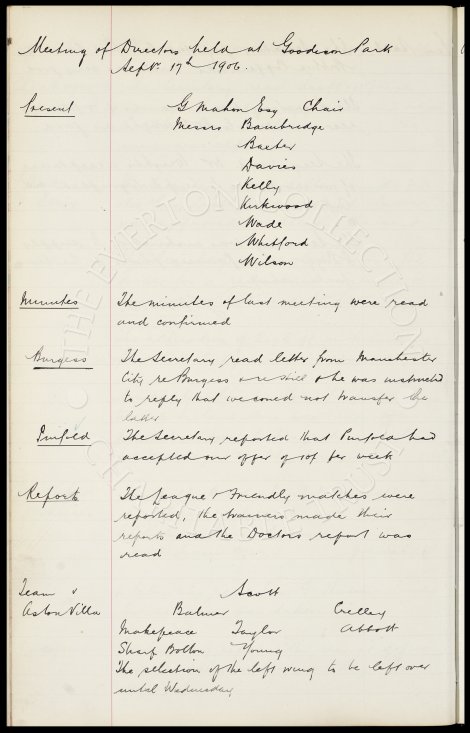 Meeting of Directors held at Goodison Park
Sept. 17th 1906.
Present
G Mahon Esq Chair
Messrs Bainbridge
Baxter
Davies
Kelly
Kirkwood
Wade
Whitford
Wilson
Minutes
The minutes of last meeting were read
and confirmed
Burgess
The Secretary read letter from Manchester
City re Burgess & he was instructed
to reply that we could not transfer the
latter
Penfold
The Secretary reported that Penfold had
accepted our offer of 10/ per week
Reports
The League & Friendly matches were
reported, the trainers made their
reports and the Doctors report was
read
Team v
Aston Villa
Scott
Balmer Crelley
Makepeace Taylor Abbott
Sharp Bolton Young
The selection of the left wing to be left over
until Wednesday
THE EVERTON COLLECTION
CHARITABLE TRUST